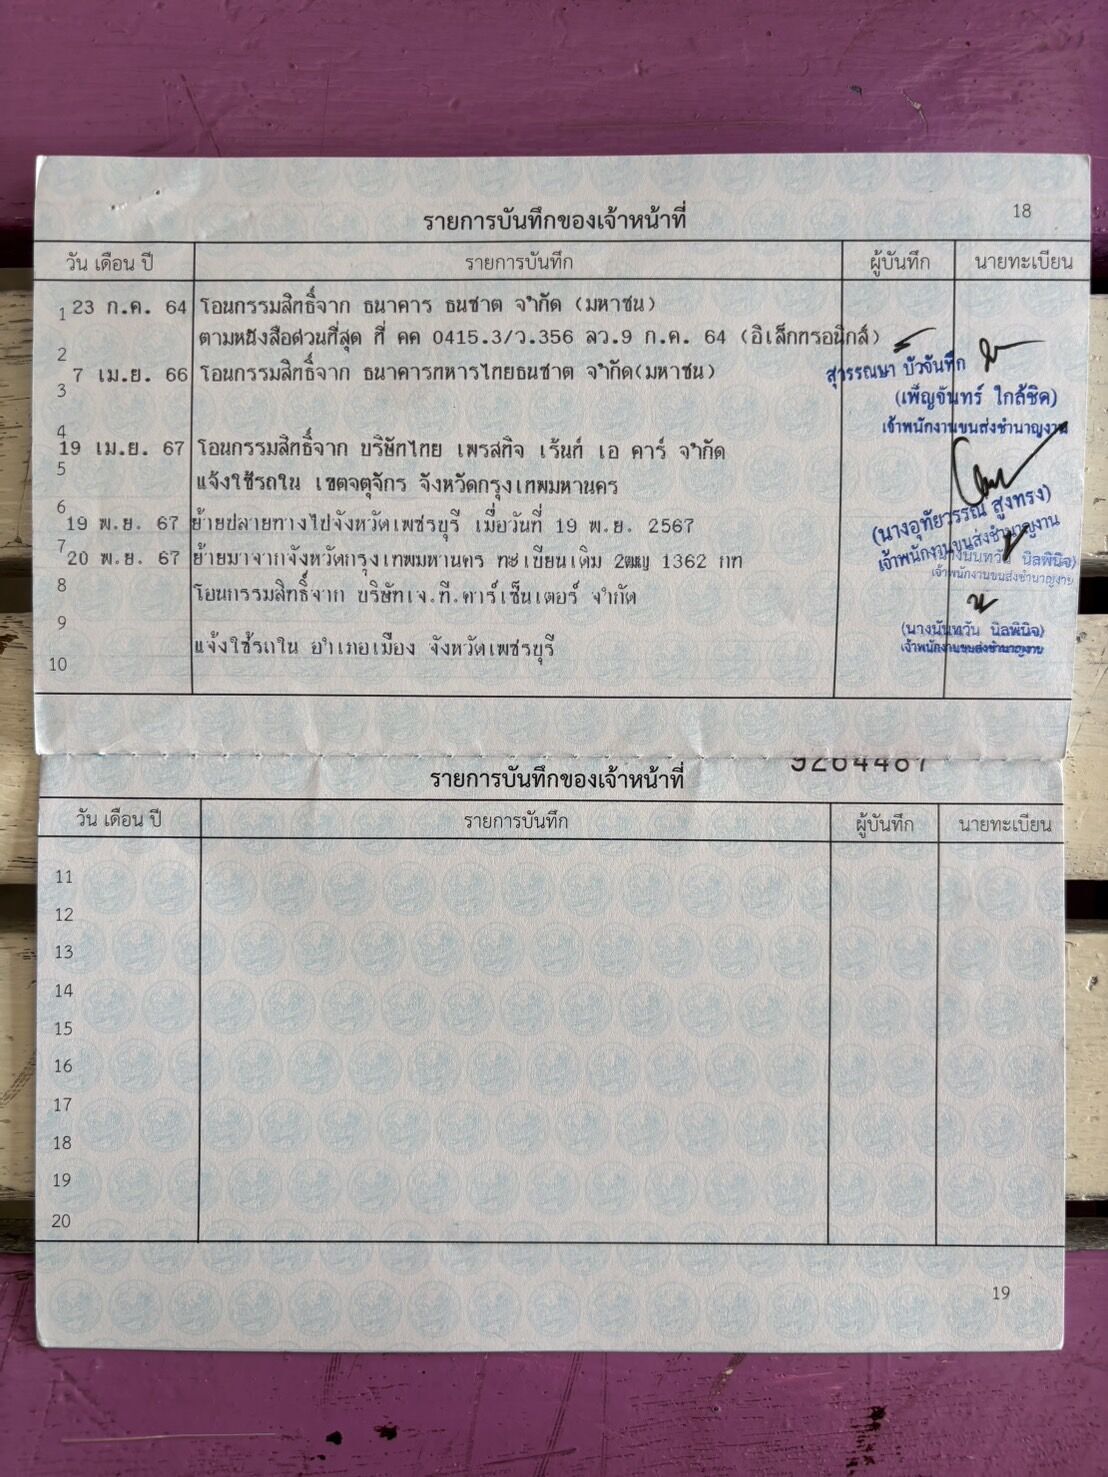 18
รายการบันทึกของเจ้าหน้าที่
วัน เดือน ปี รายการบันทึก ผู้บันทึก นายทะเบียน
1 23 ก.ค. 64 โอนกรรมสิทธิ์จาก ธนาคาร ธนชาต จำกัด (มหาชน)
ตามหนังสือด่วนที่สุด ที่ คค 0415.3/ว.356 ลว.9 ก.ค. 64 (อิเล็กทรอนิกส์)
2
7 เม.ย. 66 โอนกรรมสิทธิ์จาก ธนาคารทหารไทยธนชาต จำกัด(มหาชน)
สุวรรณษา บัวจันทึก
3
(เพ็ญจันทร์ ใกล้ชิด)
เจ้าพนักงานขนส่งชำนาญงาน
4
19 เม.ย. 67 โอนกรรมสิทธิ์จาก บริษัทไทย เพรสทิจ เร้นท์ เอ คาร์ จำกัด
5
แจ้งใช้รถใน เขตจตุจักร จังหวัดกรุงเทพมหานคร
6
19 พ.ย. 67 ย้ายปลายทางไปจังหวัดเพชรบุรี เมื่อวันที่ 19 พ.ย. 2567
(นางอุทัยวรรณ สูงทรง)
เจ้าพนักงานขนส่งชำนาญงาน
7
20 พ.ย. 67 ย้ายมาจากจังหวัดกรุงเทพมหานคร ทะเบียนเดิม 2ฒญ 1362 กท
(นางนันทวัน นิลพินิจ)
เจ้าพนักงานขนส่งชำนาญงาน
8
โอนกรรมสิทธิ์จาก บริษัทเจ.ที.คาร์เซ็นเตอร์ จำกัด
9
(นางนันทวัน นิลพินิจ)
เจ้าพนักงานขนส่งชำนาญงาน
แจ้งใช้รถใน อำเภอเมือง จังหวัดเพชรบุรี
10
9264487
รายการบันทึกของเจ้าหน้าที่
วัน เดือน ปี รายการบันทึก ผู้บันทึก นายทะเบียน
11
12
13
14
15
16
17
18
19
20
19